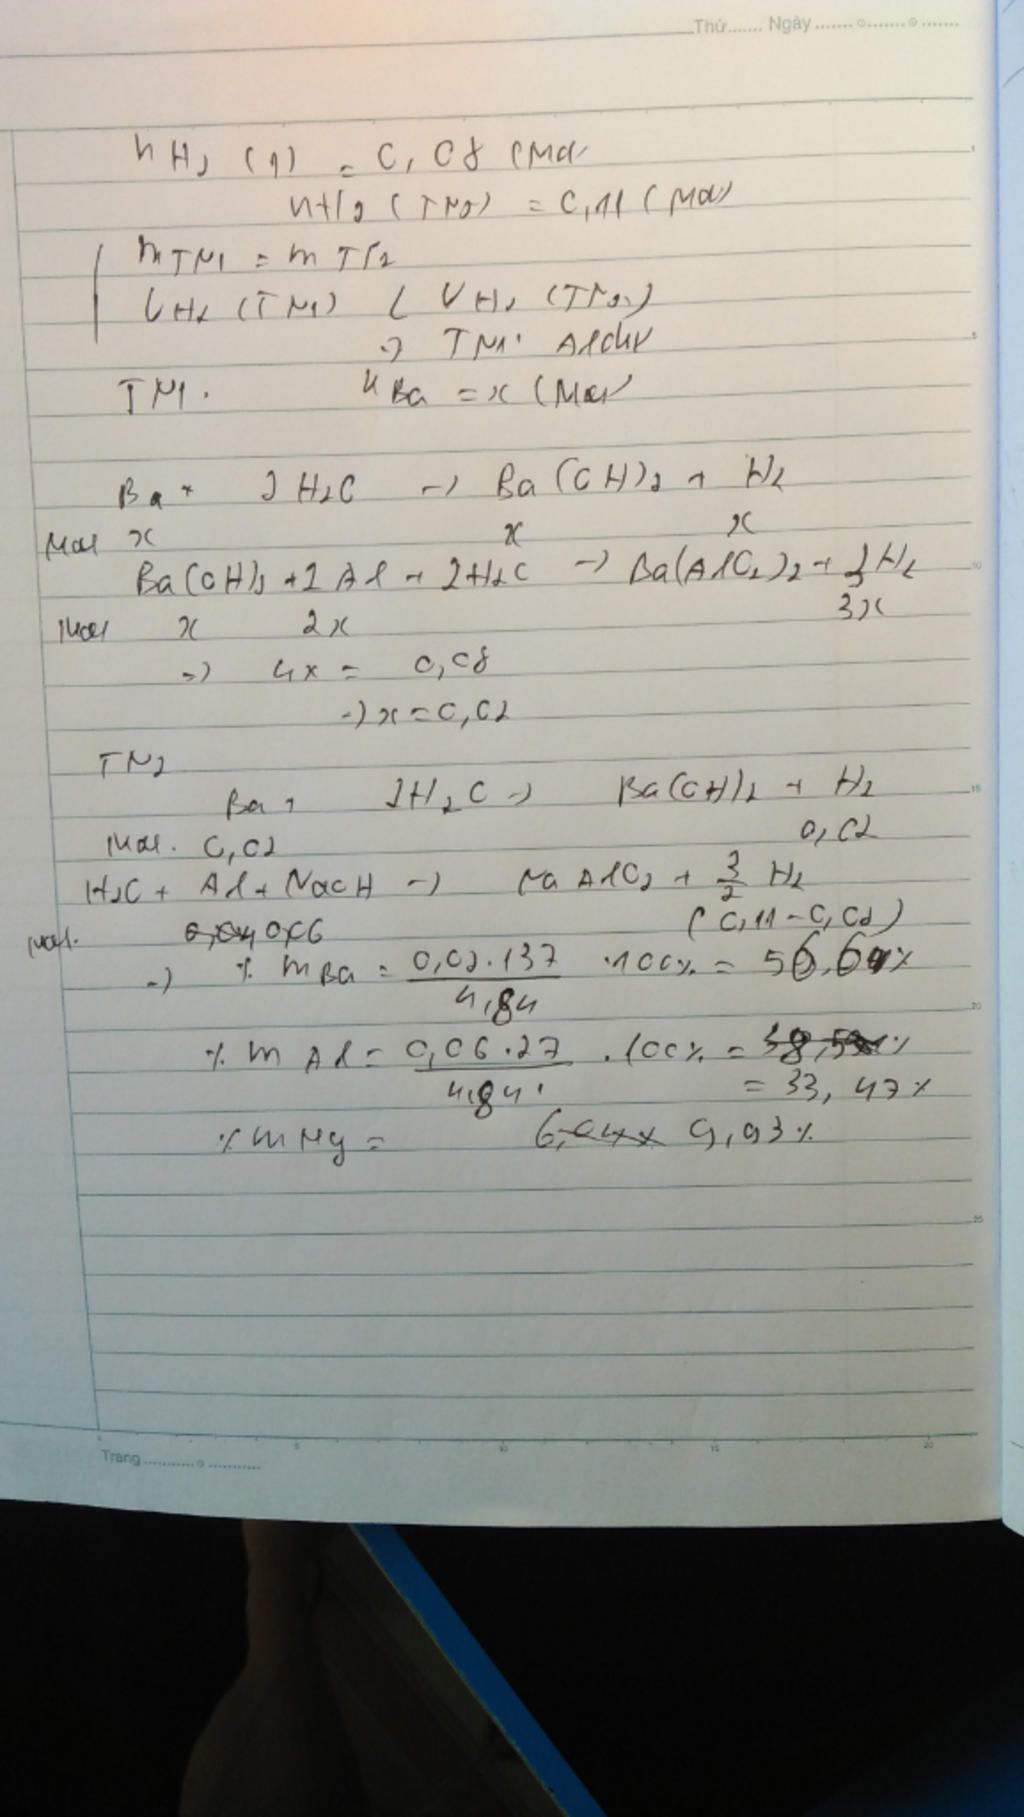 Thứ....... Ngày .......o.......o.......
nH2 (1) = 0,08 (mol
nH2 (TN2) = 0,11 (mol)
mTN1 = mTN2
VH2 (TN1) < VH2 (TN2)
=> TN1: Al dư
TN1. nBa = x (mol
Ba + 2H2O -> Ba(OH)2 + H2
Mol x x x
Ba(OH)2 + 2Al + 2H2O -> Ba(AlO2)2 + 3H2
Mol x 2x 3x
=> 4x = 0,08
-> x = 0,02
TN2
Ba + 2H2O -> Ba(OH)2 + H2
Mol. 0,02 0,02
H2O + Al + NaOH -> NaAlO2 + 3/2 H2
Mol. 0,04 0,06 (0,11 - 0,02)
-> % mBa = 0,02.137/4,84 .100% = 56,61%
% mAl = 0,06.27/4,84 .100% =
= 33,47%
% mMg = 9,93%
Trang...........o...........